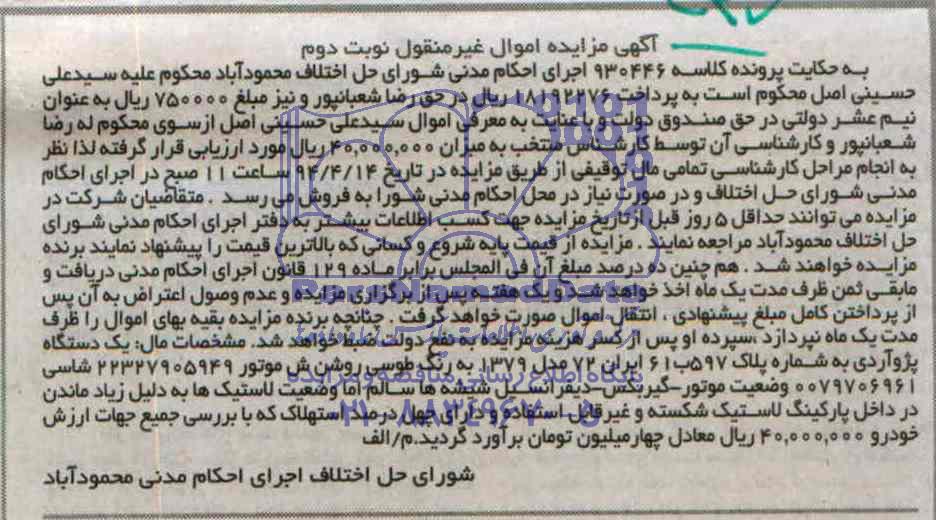 آگهی مزایده اموال غیرمنقول نوبت دوم
به حکایت پرونده کلاسه ۹۳۰۴۴۶ اجرای احکام مدنی شورای حل اختلاف محمودآباد محکوم علیه سیدعلی
حسینی اصل محکوم است به پرداخت ۱۸۱۹۲۲۷۶ ریال در حق رضا شعبانپور و نیز مبلغ ۷۵۰۰۰۰ ریال به عنوان
نیم عشر دولتی در حق صندوق دولت و با عنایت به معرفی اموال سیدعلی حسینی اصل ازسوی محکوم له رضا
شعبانپور و کارشناسی آن توسط کارشناس منتخب به میزان ۴۰,۰۰۰,۰۰۰ ریال مورد ارزیابی قرار گرفته لذا نظر
به انجام مراحل کارشناسی تمامی مال توقیفی از طریق مزایده در تاریخ ۹۴/۴/۱۴ ساعت ۱۱ صبح در اجرای احکام
مدنی شورای حل اختلاف و در صورت نیاز در محل احکام مدنی شورا به فروش می رسد . متقاضیان شرکت در
مزایده می توانند حداقل ۵ روز قبل ازتاریخ مزایده جهت کسب اطلاعات بیشتر به دفتر اجرای احکام مدنی شورای
حل اختلاف محمودآباد مراجعه نمایند . مزایده از قیمت پایه شروع و کسانی که بالاترین قیمت را پیشنهاد نمایند برنده
مزایده خواهند شد . هم چنین ده درصد مبلغ آن فی المجلس برابر ماده ۱۲۹ قانون اجرای احکام مدنی دریافت و
مابقی ثمن ظرف مدت یک ماه اخذ خواهد شد و یک هفته پس از برگزاری مزایده و عدم وصول اعتراض به آن پس
از پرداختن کامل مبلغ پیشنهادی ، انتقال اموال صورت خواهد گرفت . چنانچه برنده مزایده بقیه بهای اموال را ظرف
مدت یک ماه نپردازد ،سپرده او پس از کسر هزینه مزایده به نفع دولت ضبط خواهد شد. مشخصات مال: یک دستگاه
پژوآردی به شماره پلاک ۵۹۷ب۶۱ ایران ۷۲ مدل ۱۳۷۹ به رنگ طوسی روشن ش موتور ۲۲۳۲۷۹۰۵۹۴۹ شاسی
۰۰۷۹۷۰۶۹۶۱ وضعیت موتور-گیربکس-دیفرانسیل شیشه ها سالم اما وضعیت لاستیک ها به دلیل زیاد ماندن
در داخل پارکینگ لاستیک شکسته و غیرقابل استفاده و دارای چهل درصد استهلاک که با بررسی جمیع جهات ارزش
خودرو ۴۰,۰۰۰,۰۰۰ ریال معادل چهارمیلیون تومان برآورد گردید.م/الف
شورای حل اختلاف اجرای احکام مدنی محمودآباد